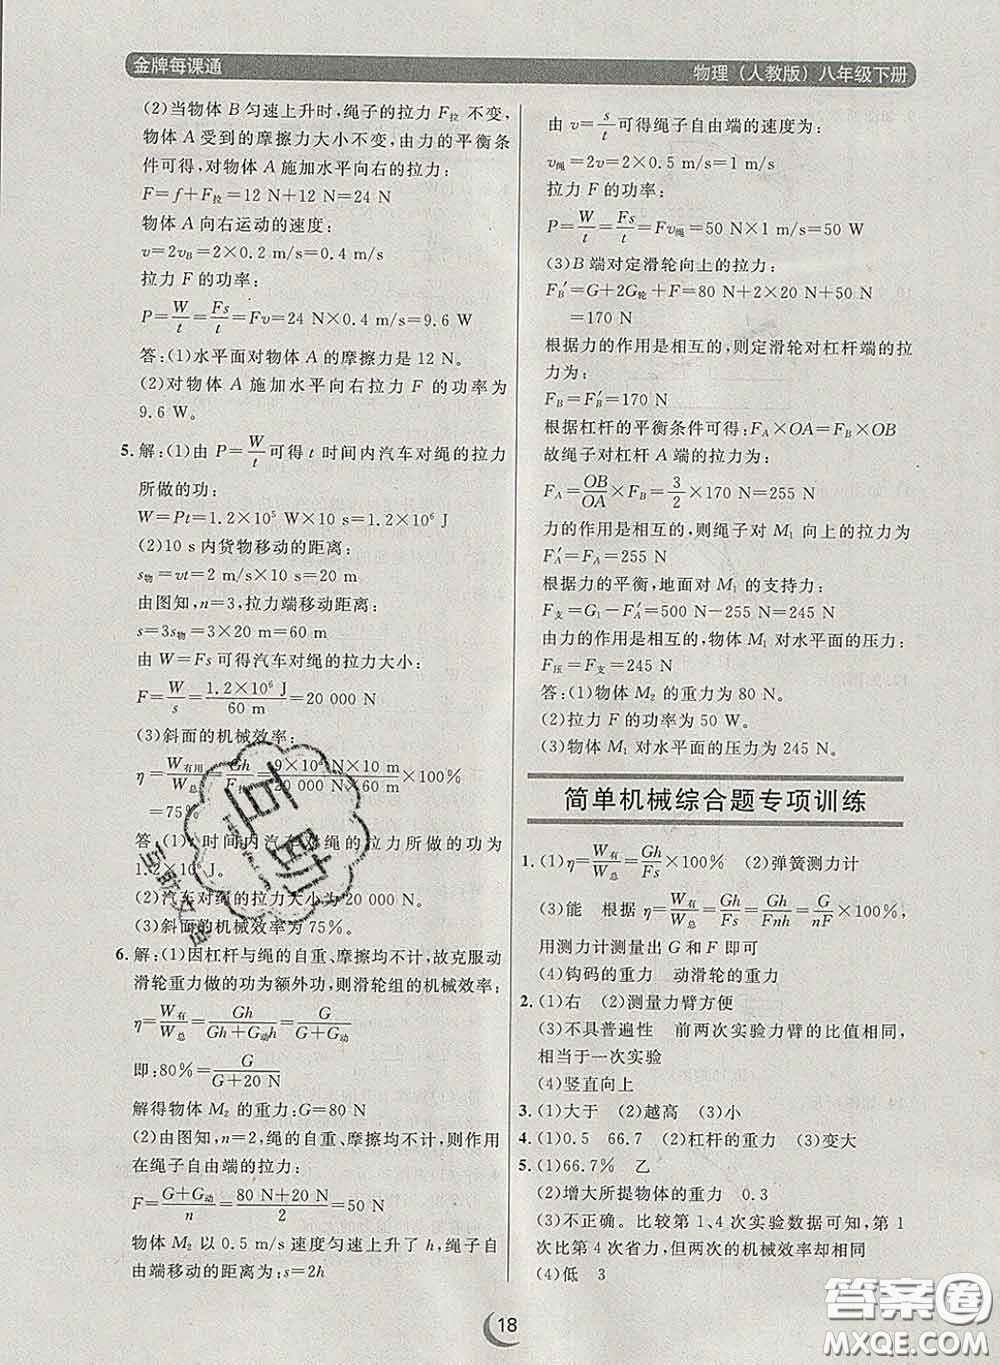 金牌每课通
物理（人教版）八年级下册
(2)当物体 B 匀速上升时,绳子的拉力 F拉 不变,
物体 A 受到的摩擦力大小不变,由力的平衡条
件可得,对物体 A 施加水平向右的拉力:
F=f+F拉=12 N+12 N=24 N
物体 A 向右运动的速度:
v=2vB=2×0.2 m/s=0.4 m/s
拉力 F 的功率:
P=W/t=Fs/t=Fv=24 N×0.4 m/s=9.6 W
答:(1)水平面对物体 A 的摩擦力是 12 N。
(2)对物体 A 施加水平向右拉力 F 的功率为
9.6 W。
5.解:(1)由 P=W/t可得 t 时间内汽车对绳的拉力
所做的功:
W=Pt=1.2×10⁵ W×10 s=1.2×10⁶ J
(2)10 s 内货物移动的距离:
s物=vt=2 m/s×10 s=20 m
由图知,n=3,拉力端移动距离:
s=3s物=3×20 m=60 m
由 W=Fs 可得汽车对绳的拉力大小:
F=W/s=1.2×10⁶ J/60 m=20 000 N
(3)斜面的机械效率:
η=W有用/W总=Gh/Fs=9×10⁴ N×10 m/20 000 N×60 m×100%
=75%
答:(1)t 时间内汽车对绳的拉力所做的功为
1.2×10⁶ J。
(2)汽车对绳的拉力大小为 20 000 N。
(3)斜面的机械效率为 75%。
6.解:(1)因杠杆与绳的自重、摩擦均不计,故克服动
滑轮重力做的功为额外功,则滑轮组的机械效率:
η=W有/W总=Gh/Gh+G动h=G/G+G动
即:80%=G/G+20 N
解得物体 M₂ 的重力:G=80 N
(2)由图知,n=2,绳的自重、摩擦均不计,则作用
在绳子自由端的拉力:
F=G+G动/n=80 N+20 N/2=50 N
物体 M₂ 以 0.5 m/s 速度匀速上升了 h,绳子自
由端移动的距离为:s=2h
由 v=s/t可得绳子自由端的速度为:
v绳=2v=2×0.5 m/s=1 m/s
拉力 F 的功率:
P=W/t=Fs/t=Fv绳=50 N×1 m/s=50 W
(3)B 端对定滑轮向上的拉力:
FB′=G+2G轮+F=80 N+2×20 N+50 N
=170 N
根据力的作用是相互的,则定滑轮对杠杆端的拉
力为:
FB=FB′=170 N
根据杠杆的平衡条件可得:FA×OA=FB×OB
故绳子对杠杆 A 端的拉力为:
FA=OB/OA×FB=3/2×170 N=255 N
力的作用是相互的,则绳子对 M₁ 向上的拉力为
FA′=FA=255 N
根据力的平衡,地面对 M₁ 的支持力:
F支=G₁-FA′=500 N-255 N=245 N
由力的作用是相互的,物体 M₁ 对水平面的压力:
F压=F支=245 N
答:(1)物体 M₂ 的重力为 80 N。
(2)拉力 F 的功率为 50 W。
(3)物体 M₁ 对水平面的压力为 245 N。
简单机械综合题专项训练
1.(1)η=W有/W总=Gh/Fs×100% (2)弹簧测力计
(3)能 根据 η=W有/W总=Gh/Fs=Gh/Fnh=G/nF×100%,
用测力计测量出 G 和 F 即可
(4)钩码的重力 动滑轮的重力
2.(1)右 (2)测量力臂方便
(3)不具普遍性 前两次实验力臂的比值相同,
相当于一次实验
(4)竖直向上
3.(1)大于 (2)越高 (3)小
4.(1)0.5 66.7 (2)杠杆的重力 (3)变大
5.(1)66.7% 乙
(2)增大所提物体的重力 0.3
(3)不正确。比较第 1、4 次实验数据可知,第 1
次比第 4 次省力,但两次的机械效率却相同
(4)低 3
18
答案圈
MXQE.COM